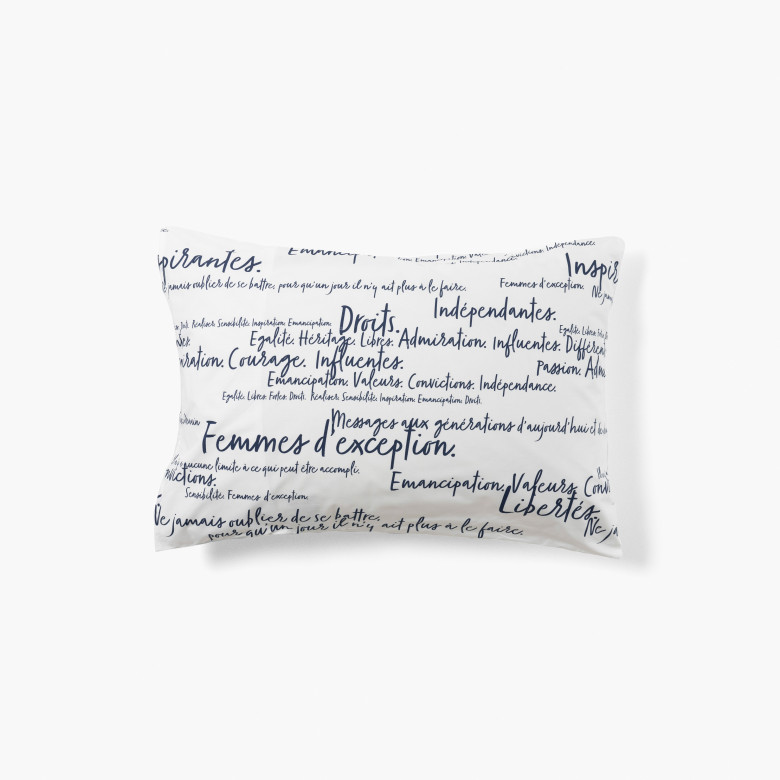 Indépendance.
pirantes.
Inspir
jamais oublier de se battre, pour qu'un jour il n'y ait plus à le faire.
Femmes d'exception.
Ne jam
Indépendantes.
Réaliser. Sensibilité. Inspiration. Emancipation.
Droits.
Egalité. Libres.
Egalité. Héritage. Libres. Admiration. Influentes. Différen
uration. Courage. Influentes.
Passion. Adm
Emancipation. Valeurs. Convictions. Indépendance.
Egalité. Libres. Fortes. Droits. Réaliser. Sensibilité. Inspiration. Emancipation. Droits.
Messages aux générations d'aujourd'hui et
Femmes d'exception.
aucune limite à ce qui peut être accompli.
ictions.
Emancipation. Valeurs. Conv
Sensibilité. Femmes d'exception.
Libertés.
Ne jamais oublier de se battre,
Ne ja
pour qu'un jour il n'y ait plus à le faire.